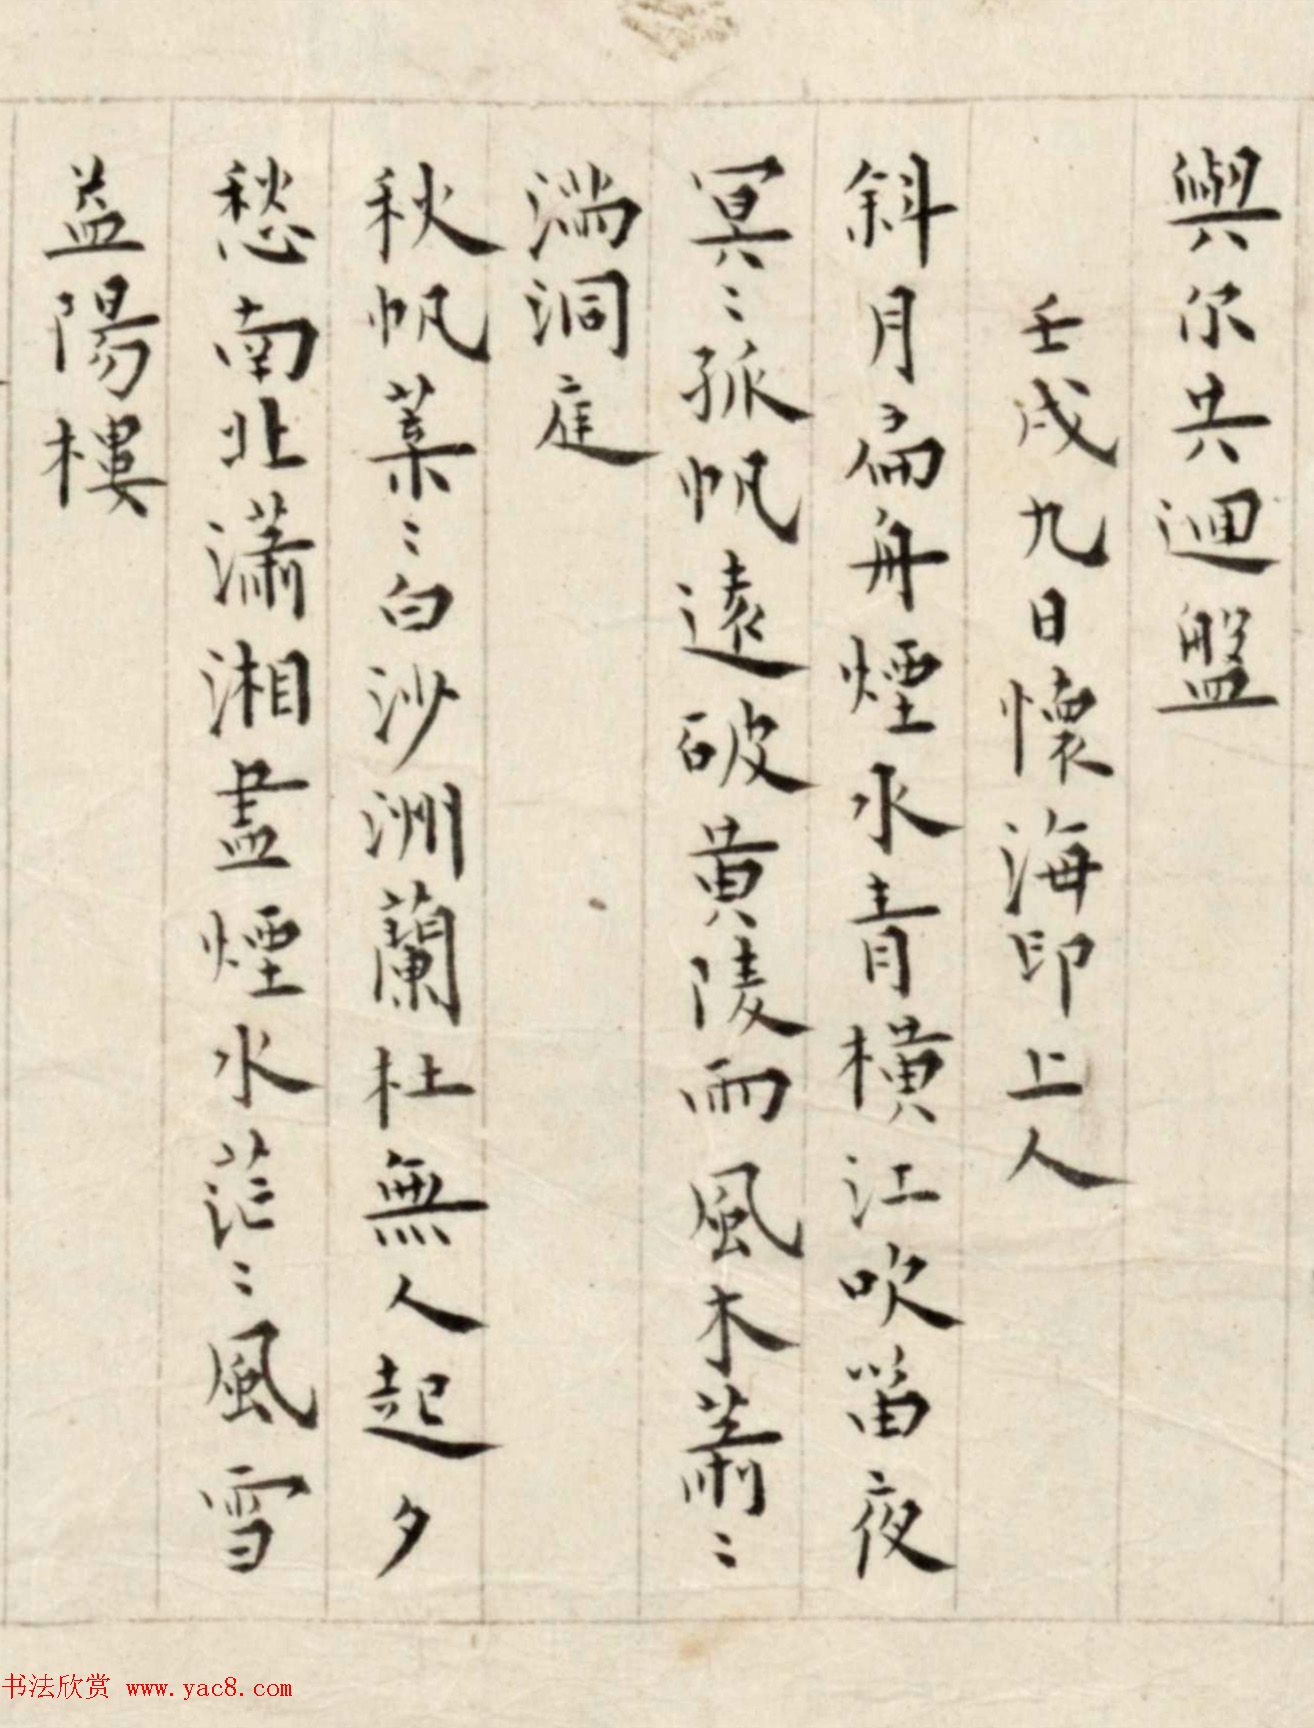 與尔共迴盤
壬戌九日懷海印上人
斜月扁舟煙水青橫江吹笛夜
冥〻孤帆遠破黃陵雨風木蕭〻
滿洞庭
秋帆葉〻白沙洲蘭杜無人起夕
愁南北瀟湘盡煙水茫〻風雪
益陽樓
书法欣赏 www.yac8.com